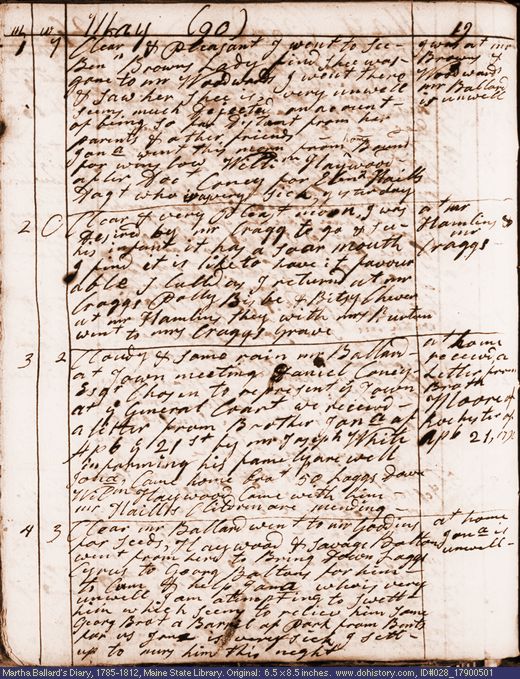 May (90) 19
1 7 Clear & Pleasant I went to See
Ben Browns Lady find She was
gone to mr Woodwards I went there
& Saw her She is very unwell
very much dejected on account
of being so distant from her
parents & other friends
went this morn
low William Haywood
Doct Coney for
Dagt who is very Sick, yesterday
I was at mr
Browns &
Woodwards
mr Ballard
is unwell
2 C Clear & very Pleast morn, I was
desired by mr Cragg to go & See
his infant it has a Soar mouth
I find it is like to have it favour
able I Calld as I returnd at mr
Craggs Polly Bisbe & Betsy Chever
at mr Hamlins they with mrs Burtun
went to mrs Craggs grave
at mr
Hamlins &
mr
Craggs
3 2 Cloudy & Some rain mr Ballard
at Town meeting Daniel Coney
Esqr Chosen to represent ye Town
at ye General Court we receivd
a letter from Brother Jona of
Apl 6 & 21 st by mr Joseph White
informing his family are well
Came home brot 50 Loggs Dave
Haywood Came with him
mr Children are mending
at home
receivd a
Letter from
Broth
Moore of
Rochester of
Apl 21,
4 3 Clear mr Ballard went to mr Goodins
for Seeds, Haywood & Savage Bolton
went from here to Bring down Loggs
Cyrus to Georg for him
to Come & See Jona who is very
unwell I am atempting to Sweet
him which Seems to relieve him Some
Georg Brot a Barrel of Pork from Bomb
for us Jona is very Sick I Sett
up to nurs him this night
at home
Jona is
unwell
Martha Ballard's Diary, 1785-1812, Maine State Library. Original: 6.5 x 8.5 inches. www.dohistory.com, ID#028_17900501